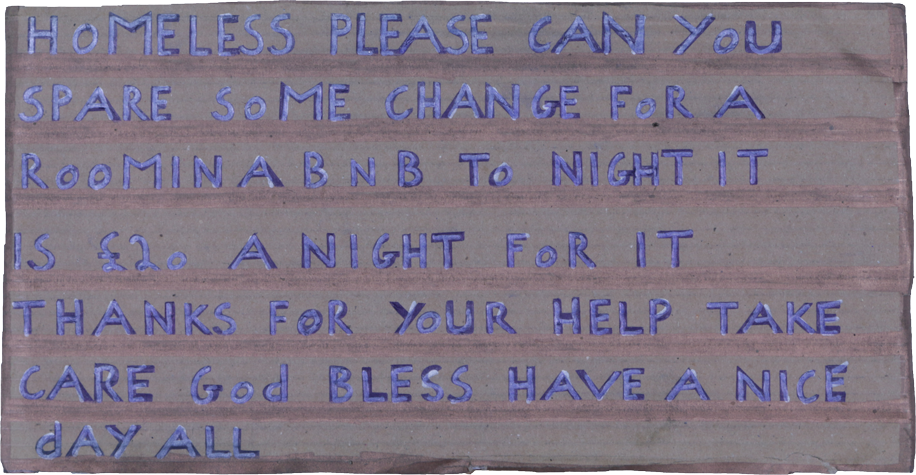 HOMELESS PLEASE CAN YOU
SPARE SOME CHANGE FOR A
ROOMINABNB TO NIGHT IT
IS £20 A NIGHT FOR IT
THANKS FOR YOUR HELP TAKE
CARE God BLESS HAVE A NICE
dAY ALL